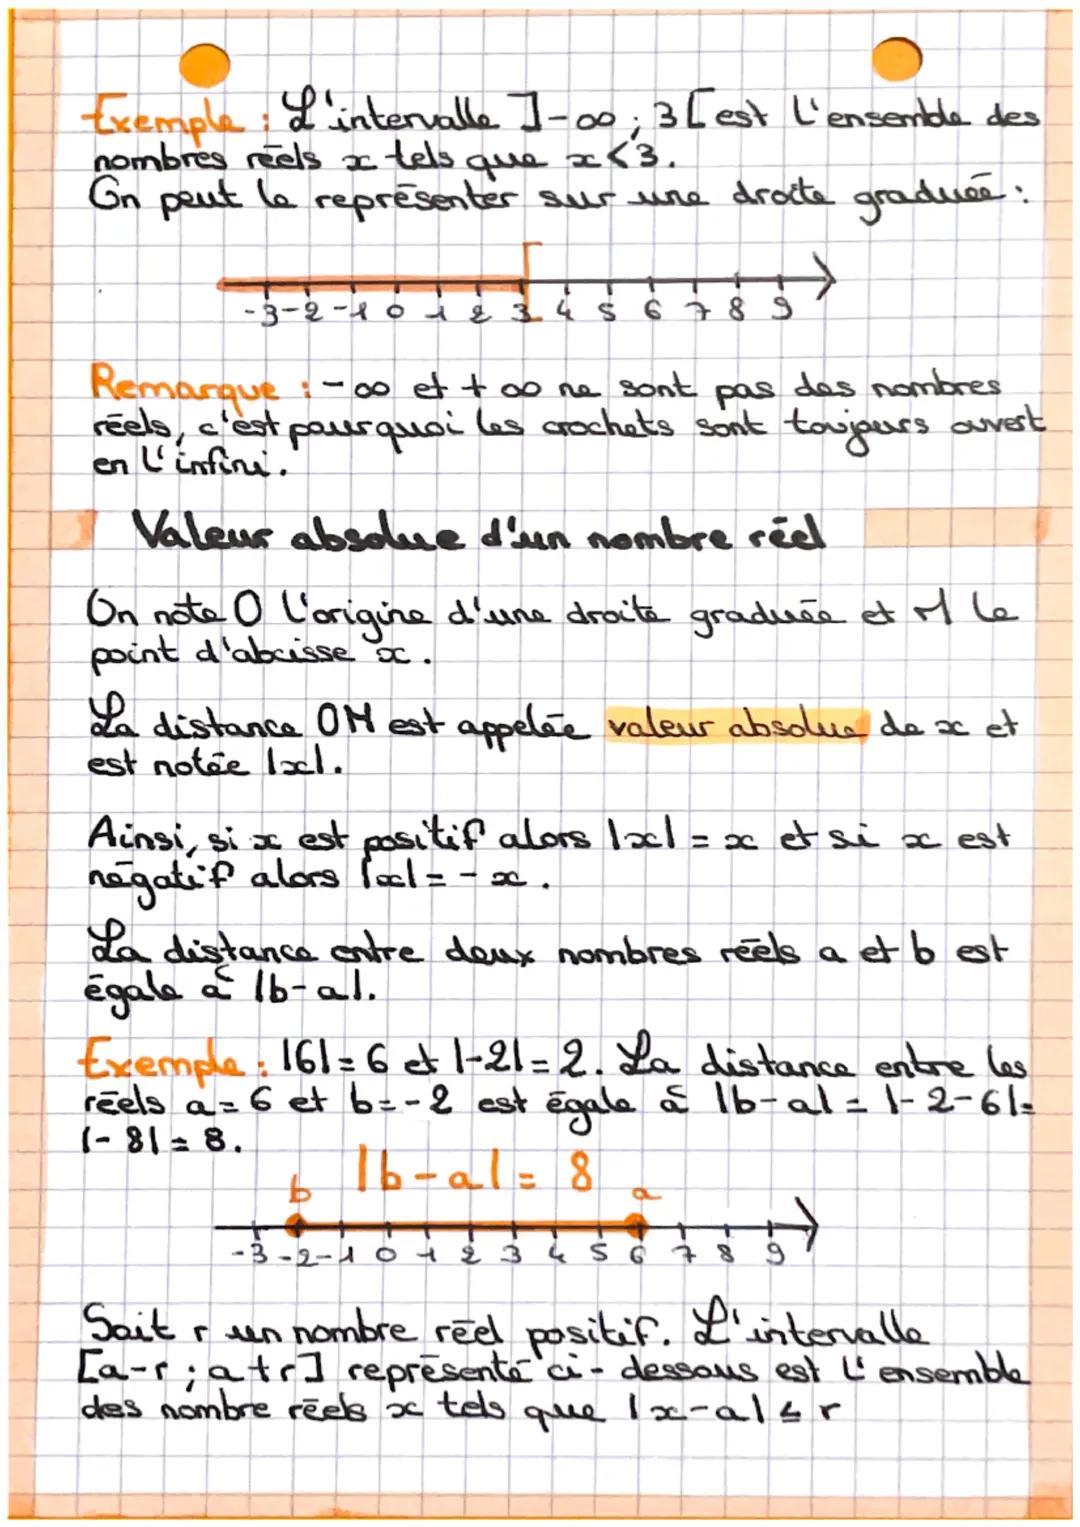 Exemple : L'intervalle ]-∞ ; 3[ est l'ensemble des
nombres réels x tels que x<3.
On peut le représenter sur une droite graduée :
-3 -2 -1 0 1 2 3 4 5 6 7 8 9
Remarque : -∞ et +∞ ne sont pas des nombres
réels, c'est pourquoi les crochets sont toujours ouvert
en l'infini.
Valeur absolue d'un nombre réel
On note O l'origine d'une droite graduée et M le
point d'abcisse x.
La distance OM est appelée valeur absolue de x et
est notée |x|.
Ainsi, si x est positif alors |x| = x et si x est
négatif alors |x| = - x .
La distance entre deux nombres réels a et b est
égale à |b-a|.
Exemple : |6| = 6 et |-2| = 2. La distance entre les
réels a = 6 et b = -2 est égale à |b-a| = |-2-6| =
|-8| = 8.
|b-a| = 8
b a
-3 -2 -1 0 1 2 3 4 5 6 7 8 9
Soit r un nombre réel positif. L'intervalle
[a-r ; a+r] représenté ci-dessous est l'ensemble
des nombre réels x tels que |x-a| ≤ r